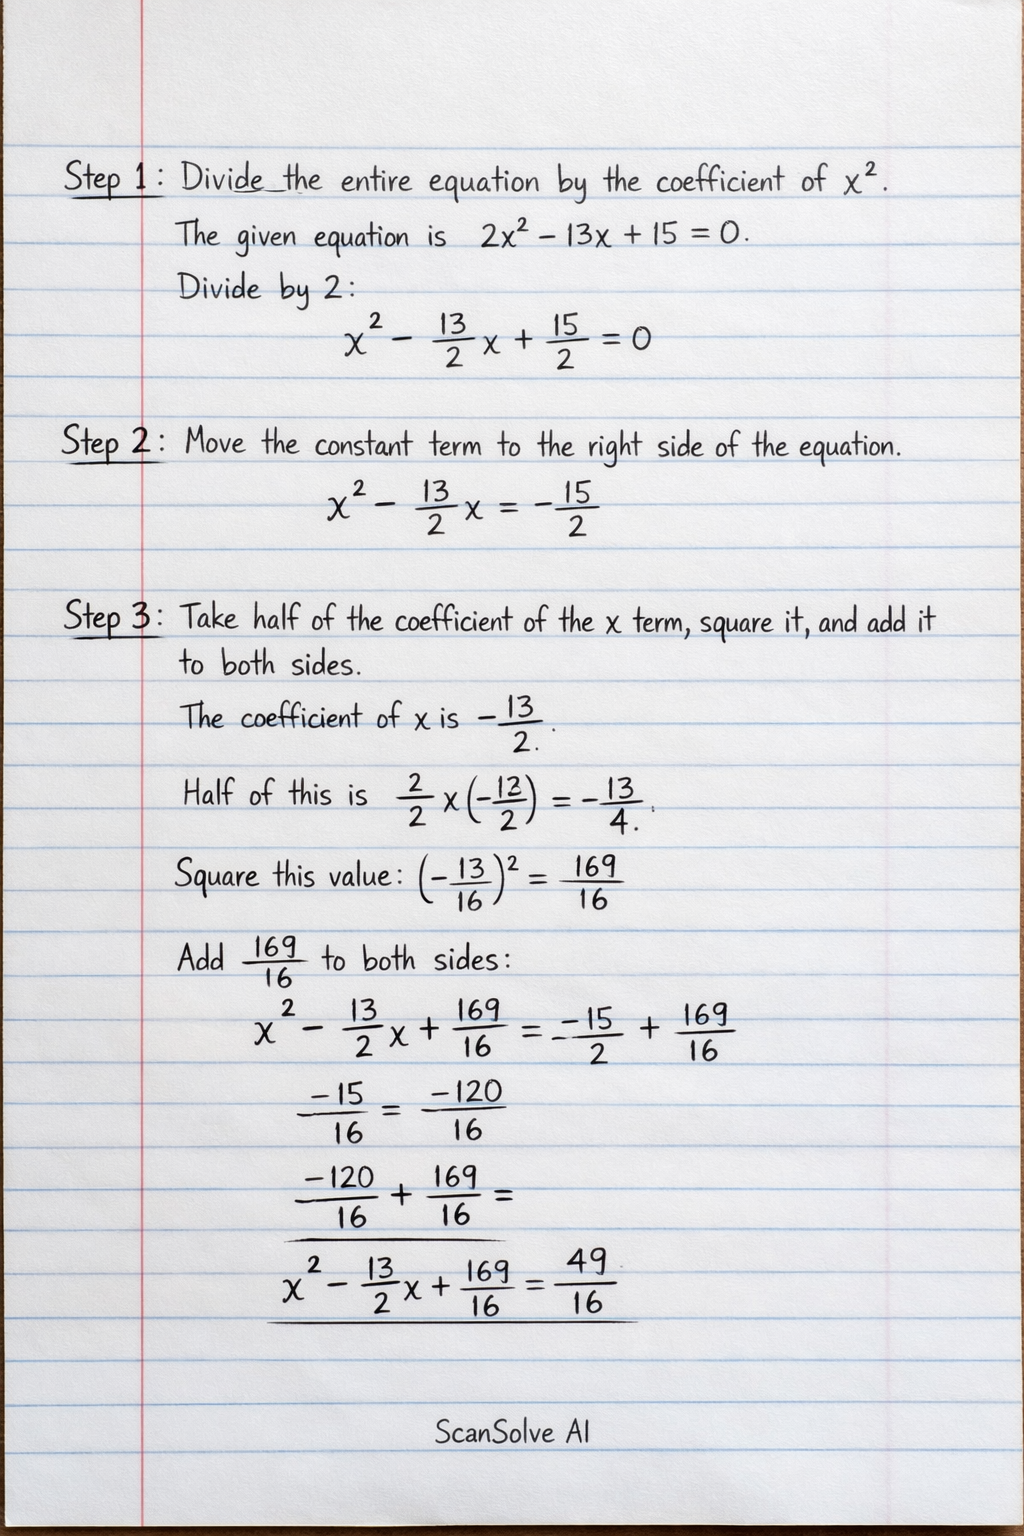 Step 1: Divide the entire equation by the coefficient of x².
The given equation is 2x² − 13x + 15 = 0.
Divide by 2:
x² − 13/2 x + 15/2 = 0
Step 2: Move the constant term to the right side of the equation.
x² − 13/2 x = −15/2
Step 3: Take half of the coefficient of the x term, square it, and add it
to both sides.
The coefficient of x is −13/2.
Half of this is 2/2 × (−13/2) = −13/4.
Square this value: (−13/16)² = 169/16
Add 169/16 to both sides:
x² − 13/2 x + 169/16 = −15/2 + 169/16
−15/16 = −120/16
−120/16 + 169/16 =
x² − 13/2 x + 169/16 = 49/16
ScanSolve AI